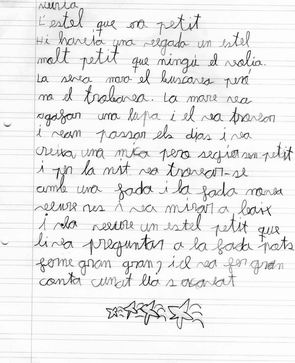 L'estel que era petit
Hi havia una vegada un estel
molt petit que ningú el volia.
La seva mara el buscava però
no el trobava. La mare va
agafar una lupa i el va trovar
i van passar els dias i va
creixa una mica pero seguia sen petit
i per la nit va trovar-se
amb una fada i la fada nova
veure res i va mirar a baix
i va veure un estel petit que
li va preguntar a la fada pots
forme gran gran, i el va fer gran
conta cunat lla s'acavat